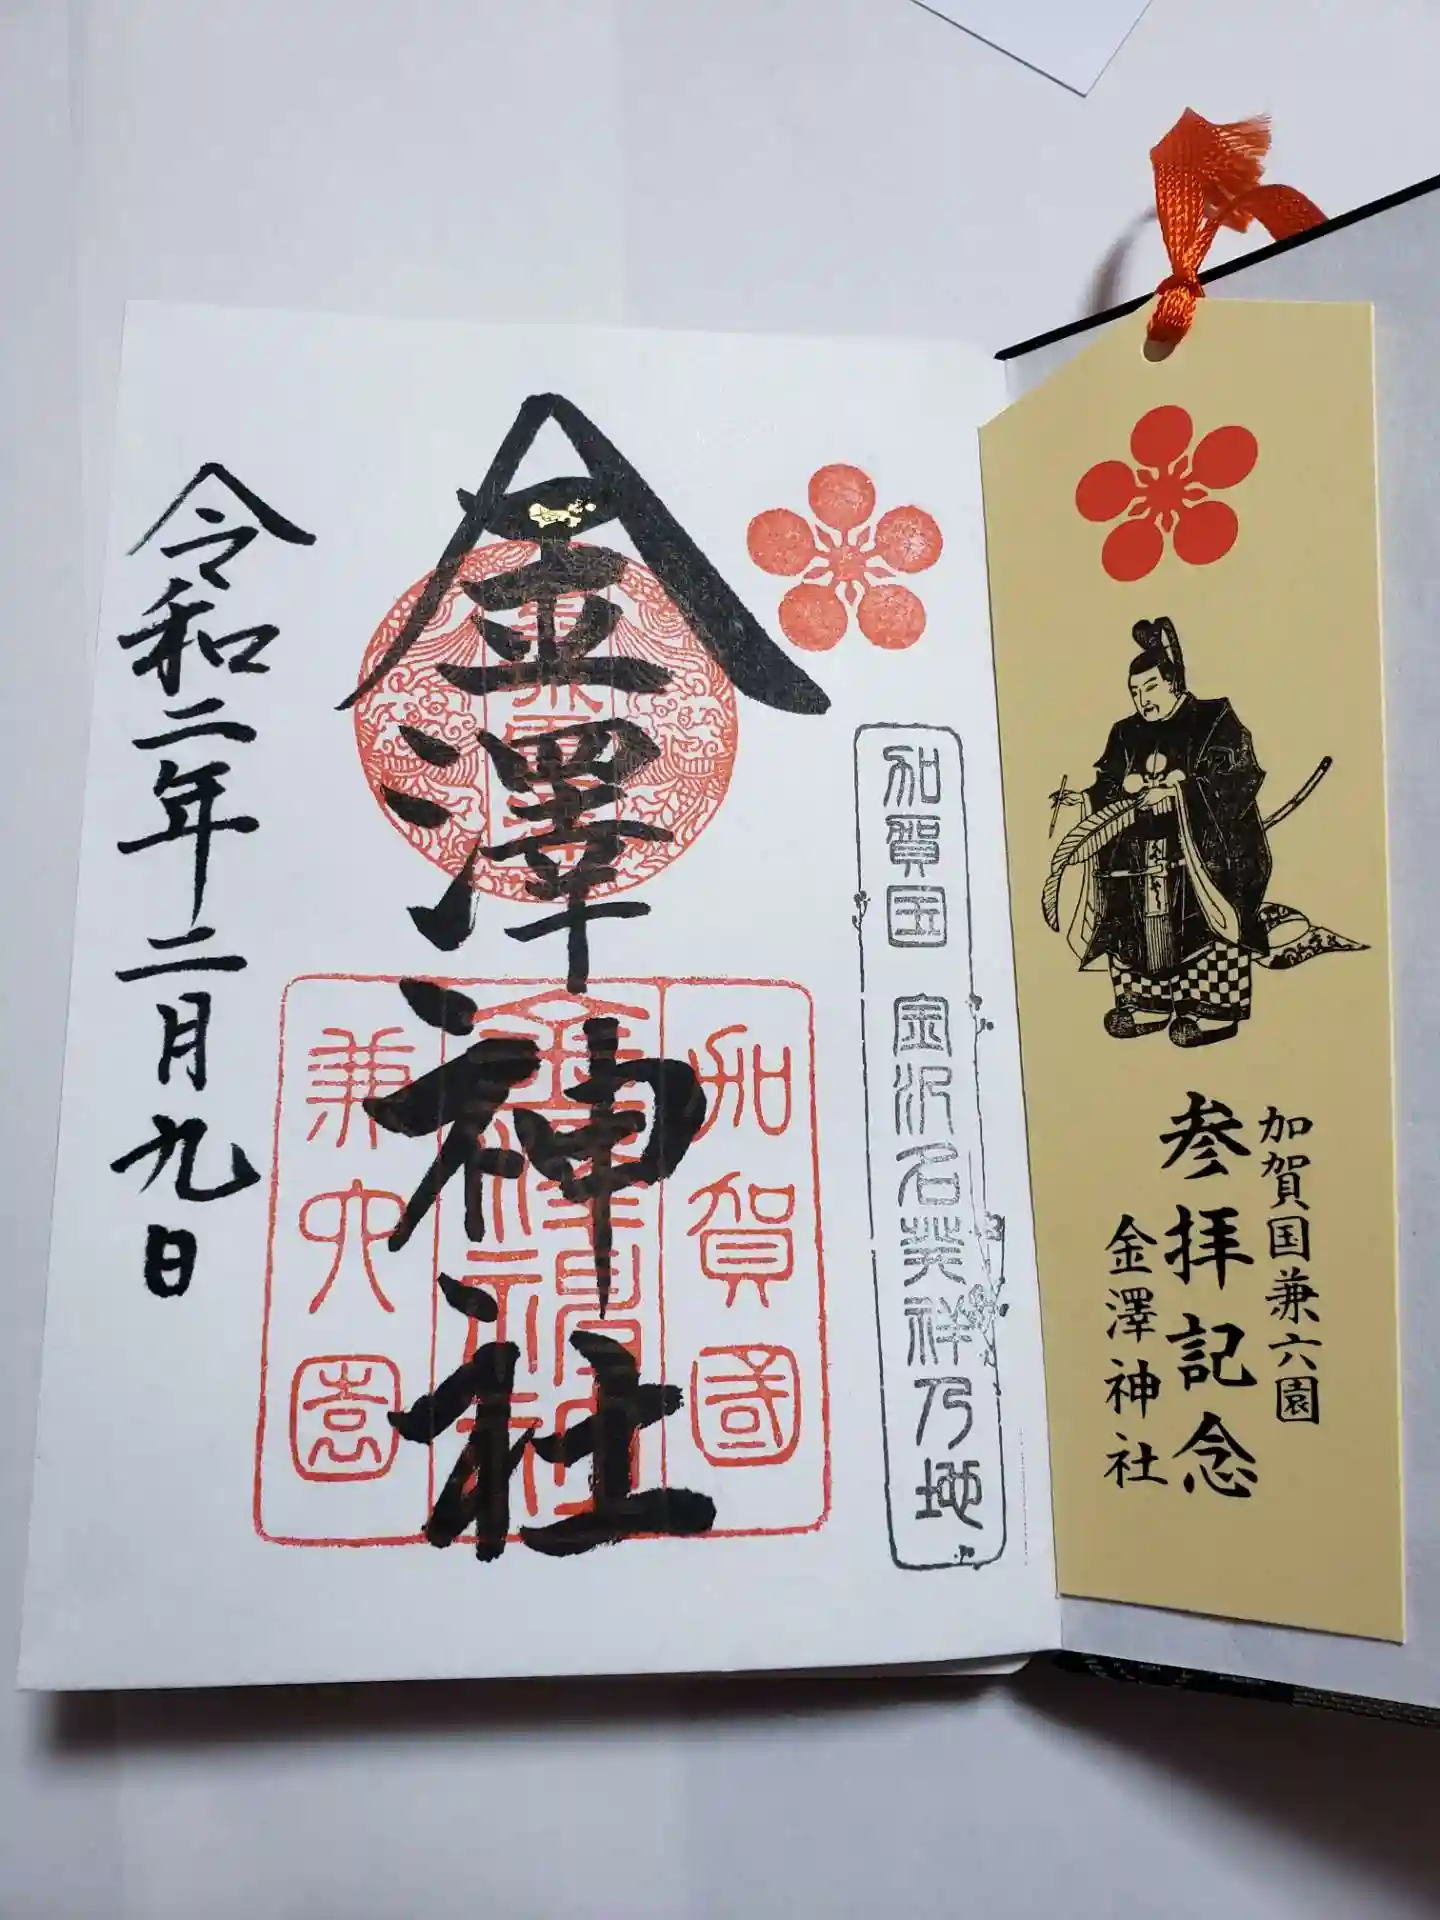 加賀国兼六園
参拝記念
金澤神社
加賀国 金沢名発祥乃地
加賀國
金澤神社
兼六園
金澤神社
令和二年二月九日